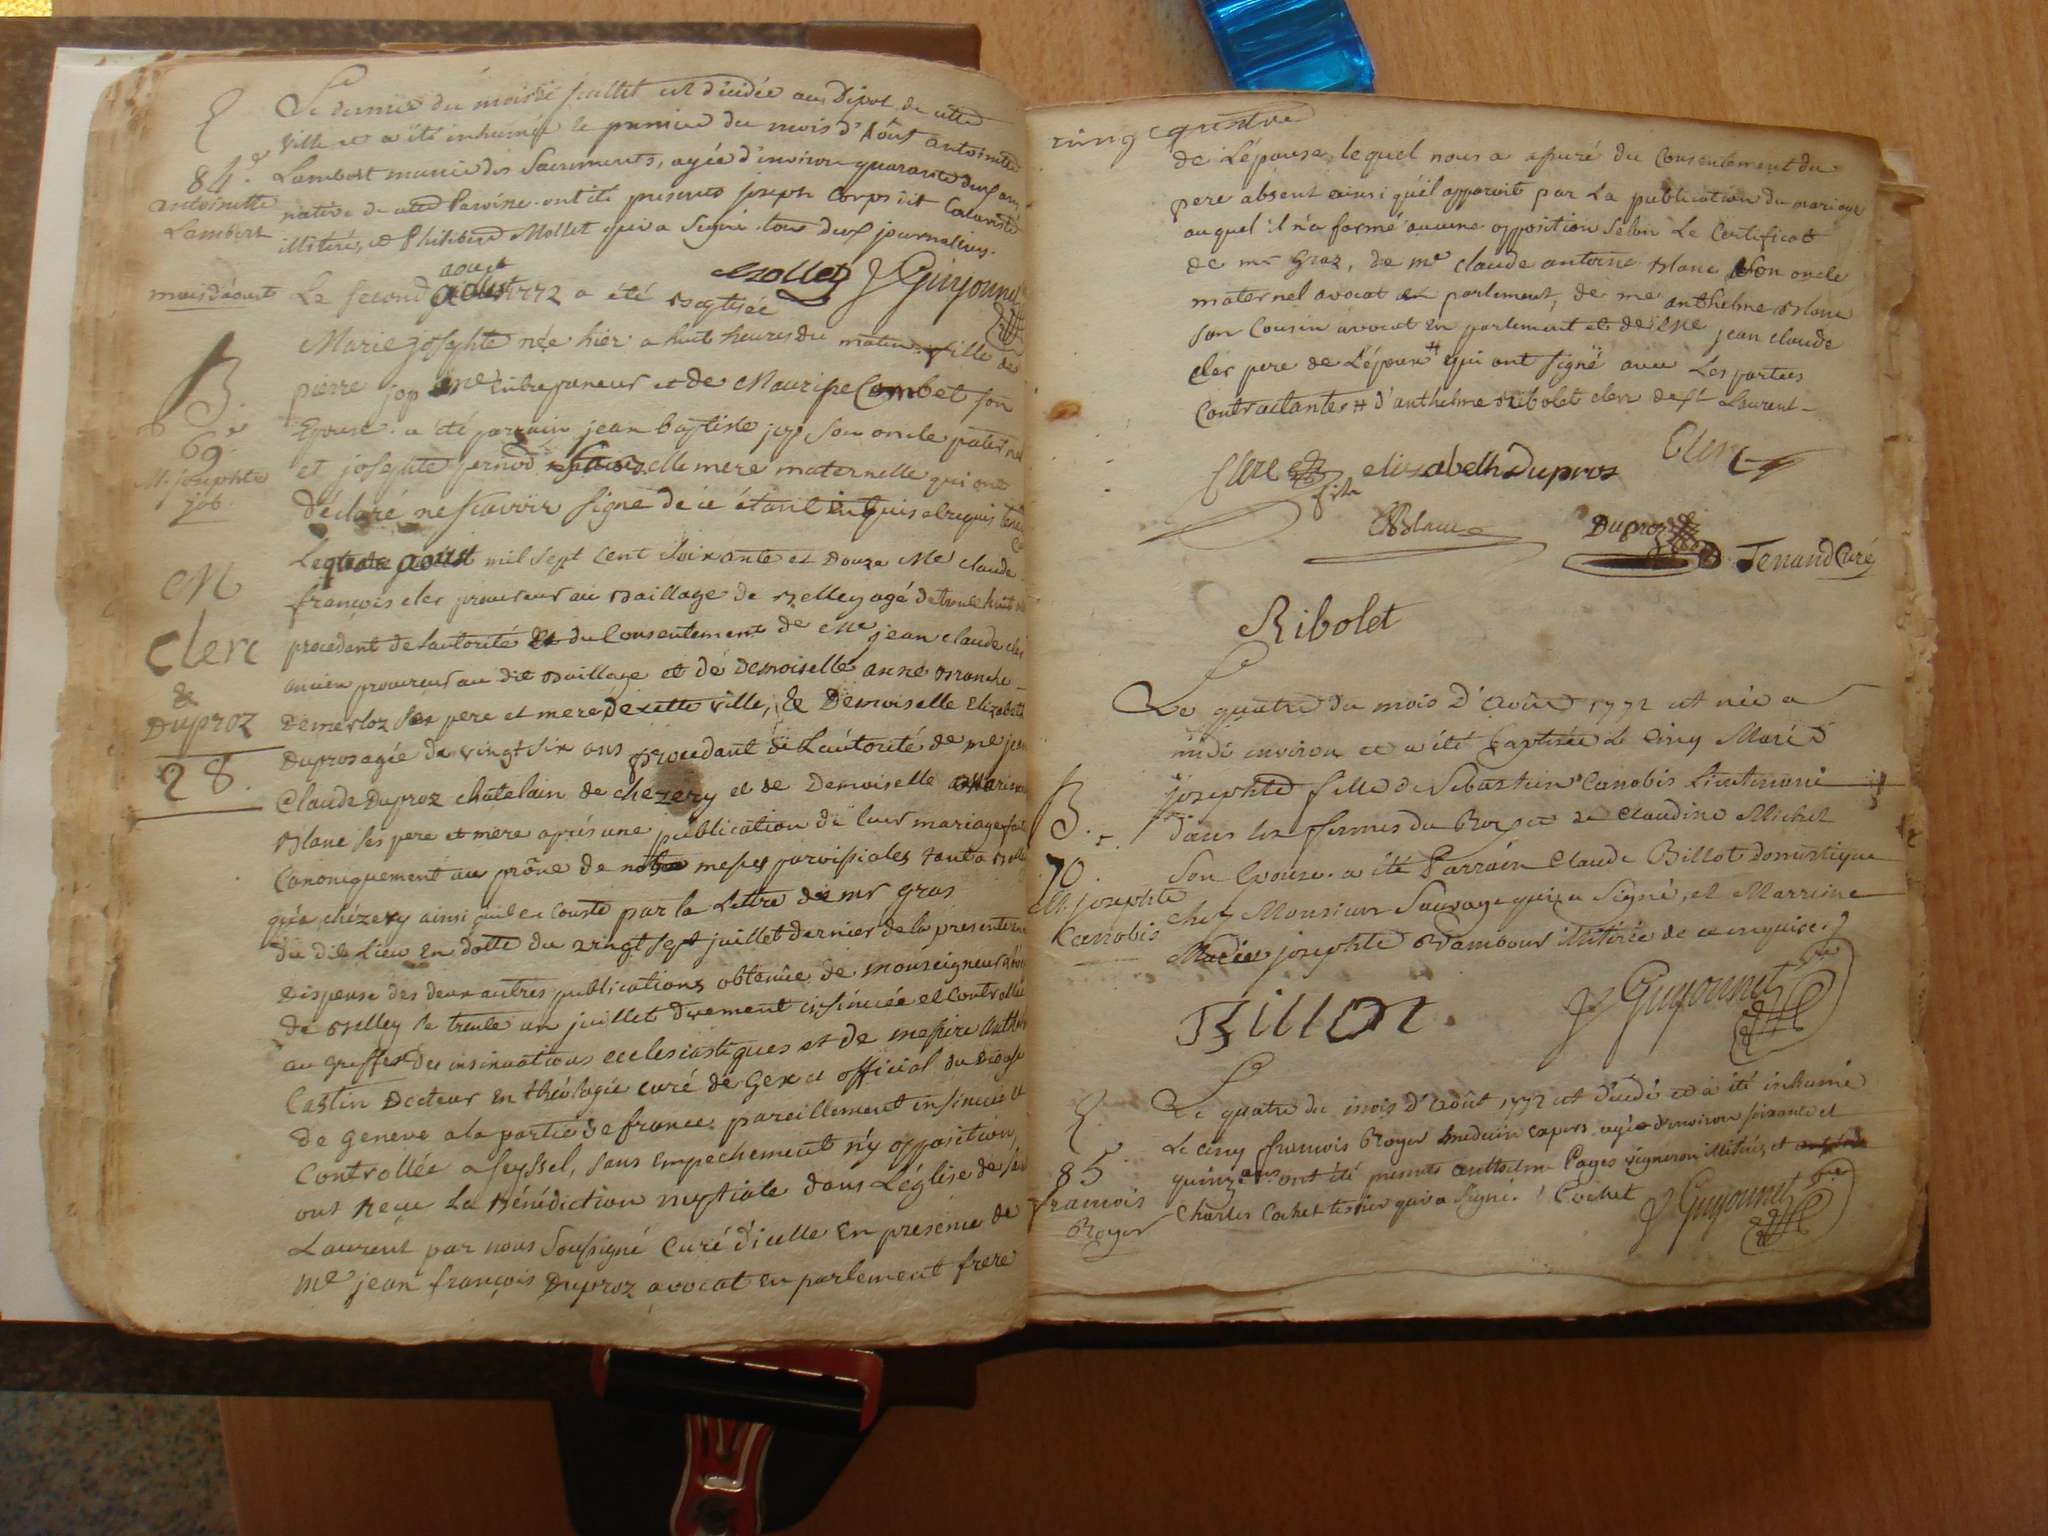 Le dernier du mois de juillet est décédée au Dépot de cette
ville et a été inhumée le premier du mois d'Aôut antoinette
84.e Lambert munie des Sacrements, agée d'environ quarante deux ans
antoinette
Lambert
native de cette Paroisse. ont été presents joseph Corps dit
illiteré, et Philibert Mollet qui a Signé. tous deux journaliers.
Mollet J Guyonnet
mois d'aoust
Le second aoust 1772 a été Baptisée
Marie josephte née hier a huit heures du matin fille de
B.
69.e
M. josephte
job.
pierre jop entrepreneur et de Maurise Combet son
Epouse. a été parrain jean baptiste jop son oncle paternel
et josephte pernod sa maternelle qui ont
déclaré ne scavoir signe de ce étant Enquis et requis
M
Clerc
&
Duproz
28.
Le aoust mil sept cent soixante et Douze Me claude
françois clerc procureur au Baillage de Belley agé de trente huit
procedant de l'autorité et du Consentement de Me jean claude clerc
ancien procureur au dit Baillage et de demoiselle anne
Demerloz ses pere et mere de cette ville, & Demoiselle Elizabeth
Dupros agée de vingt six ans procedant de L'autorité de me jean
Claude Duproz chatelain de chézery et de Demoiselle
Blanc ses pere et mere après une publication de leur mariage faite
Canoniquement au prône de nos messes paroissiales tant a Belley
qu'a chézery ainsi qu'il en Couste par la Lettre de mr gras
du dit Lieu En datte du vingt sept juillet dernier de la presente
Dispense des deux autres publications obtenüe de monseigneur
de Belley le trente un juillet dvement insinuée et Controllée
au greffe des insinuations ecclesiastiques et de messire
Castin Docteur En théologie curé de Gex et official du Diocese
de Geneve a la partie de france. pareillement insinuée et
Controllée a seyssel, sans empechement n'y opposition,
ont Reçue La Bénédiction nuptiale dans L'église de St
Laurent par nous soussigné Curé d'icelle En presence de
me jean françois Duproz avocat en parlement frere
cinq quatre
de L'épouse, lequel nous a assuré du Consentement du
pere absent ainsi qu'il apparoit par La publication du mariage
auquel il n'a formé aucune opposition selon Le Certificat
de mr Graz, de me claude antoine Blanc son oncle
maternel avocat en parlement, de me anthelme Blanc
son Cousin avocat en parlement et de Me jean claude
clerc pere de L'époux # qui ont signé avec Les parties
Contractantes # d'anthelme Ribolet clerc de St Laurent
Clerc fils elizabeth Dupros Clerc
Blanc Duproz Tenand Curé
Ribolet
Le quatre du mois d'Août 1772 est née a
midi environ et a été baptisée le cinq Marie
B.
70.
M. josephte
Canobis
josephte fille de Sebastien Canobis Lieutenant
dans les fermes du Roy et de Claudine Michel
son Epouse. a été Parrain Claude Billot domestique
chez Monsieur Sauvage qui a Signé, et Marrine
josephte illitérée de ce enquise.
Billot J Guyonnet
Le quatre du mois d'Août 1772 est décédé et a été inhumé
Le cinq françois Royer agé d'environ soixante et
85.e
francois
Royer
quinze ans ont été presents anthelme Pages vigneron illitéré, et
Charles Cochet tissier qui a Signé. Cochet J Guyonnet